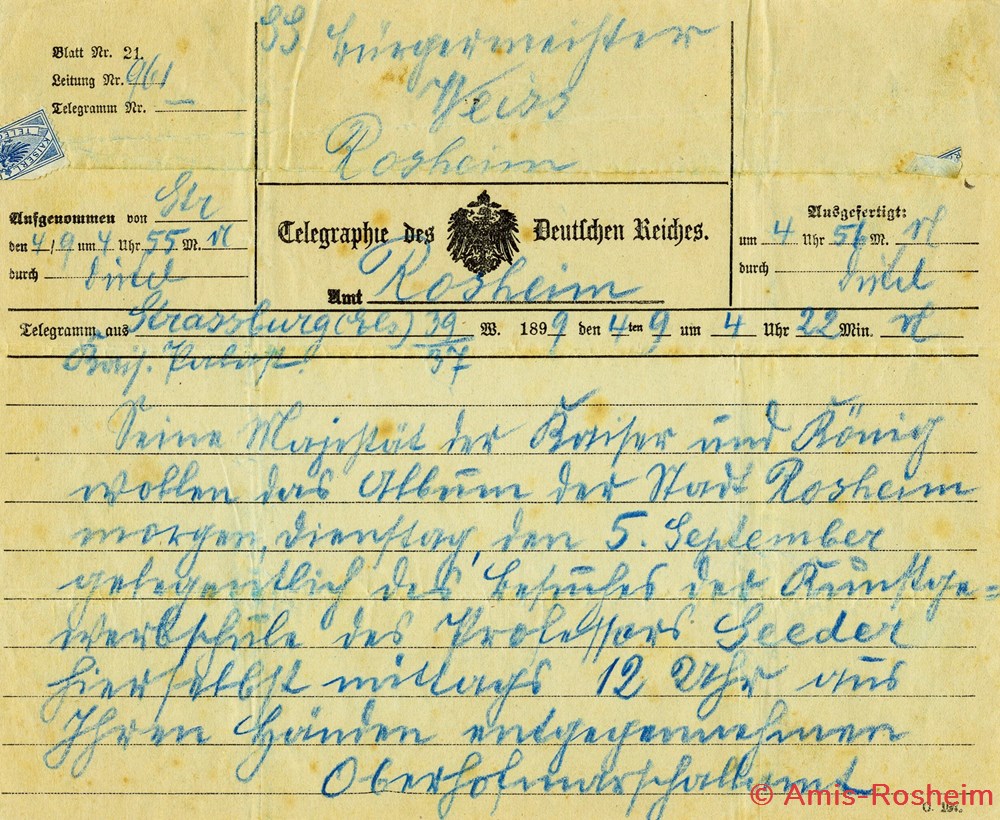 SS Bürgermeister
Weiss
Rosheim
Blatt Nr. 21.
Leitung Nr. 961
Telegramm Nr.
Aufgenommen von Str
den 4/9 um 4 Uhr 55 M. N
durch
Telegraphie des Deutschen Reiches.
Amt Rosheim
Ausgefertigt:
um 4 Uhr 56 M. N
durch
Telegramm aus Strassburg (Els) 39 W. 1899 den 4ten 9 um 4 Uhr 22 Min. N
Kais. Palast. 37
Seine Majestät der Kaiser und König
wollen das Album der Stadt Rosheim
morgen, Dienstag, den 5. September
gelegentlich des Besuches der Kunstge=
werbschule des Professors Seeder
hierselbst mittags 12 Uhr aus
Ihren Händen entgegennehmen
Oberhofmarschallamt
© Amis-Rosheim